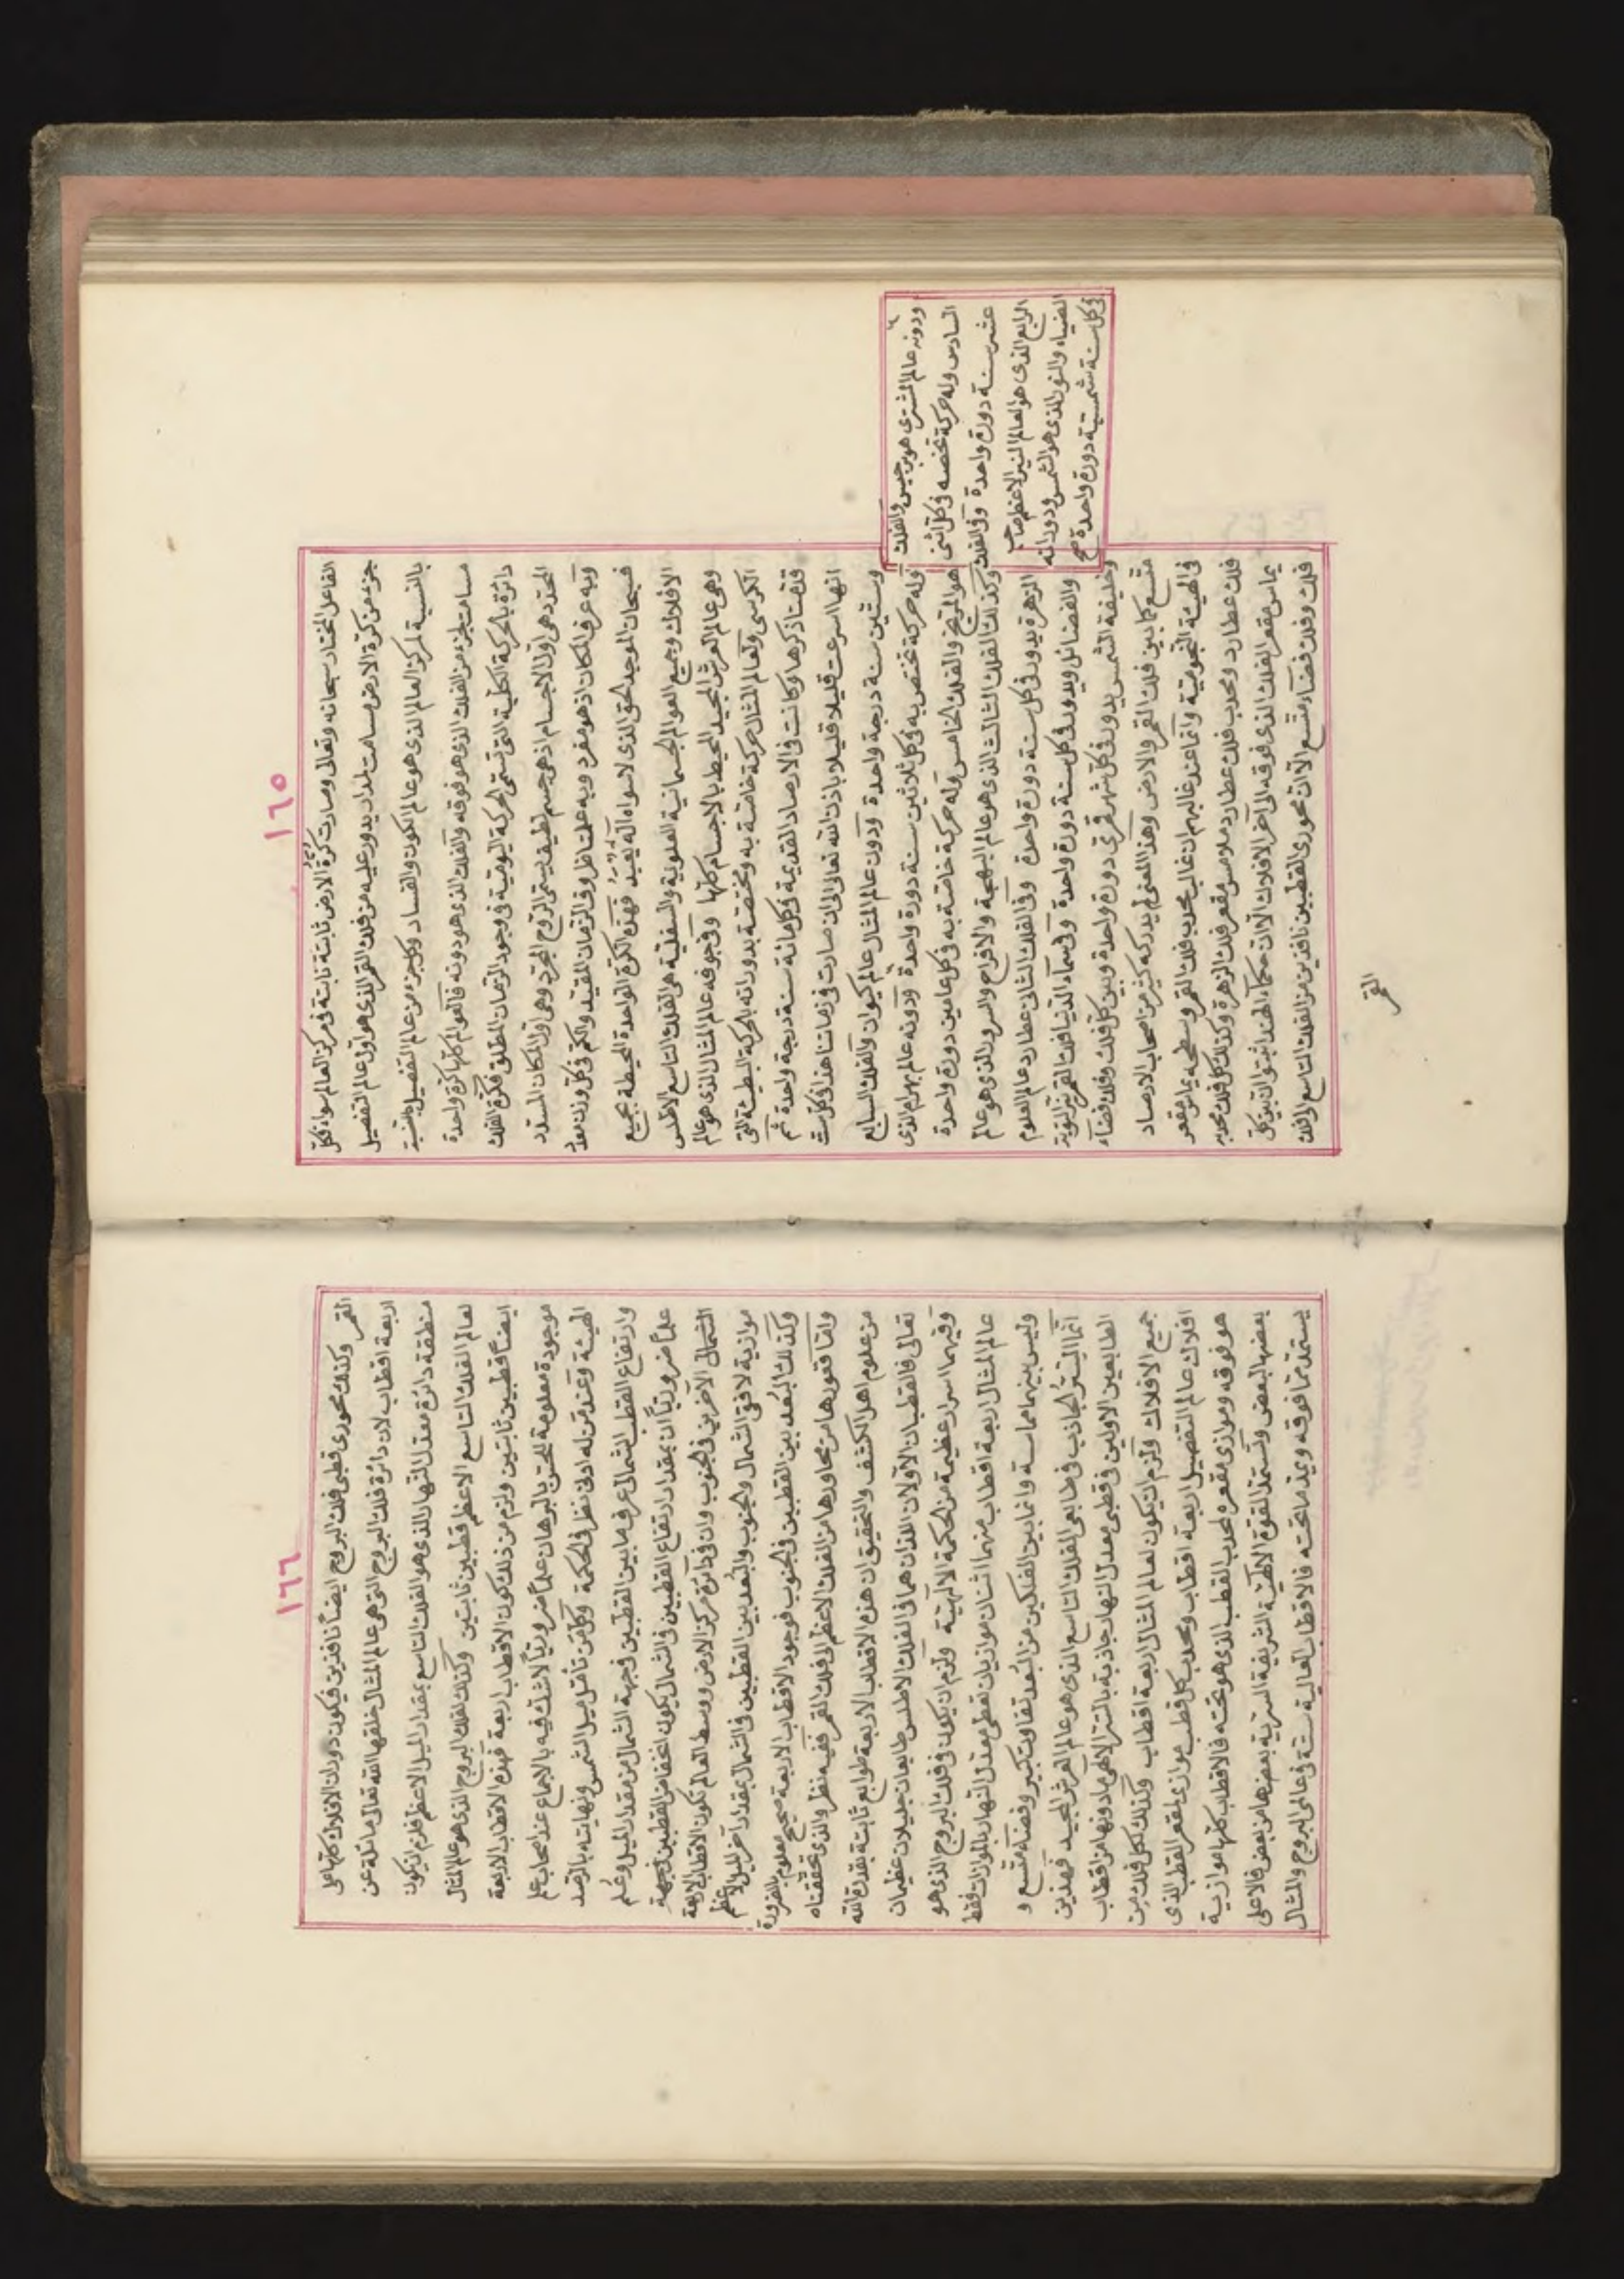 ١٦٥
الفاعل المختار سبحانه وتعالى وصارت كرة الارض ثابتة نابتة فى مركز العالم سواء فكل
جزء من كرة الارض مسامت لمدار يدور عليه من فلك القمر الذى هو اول عالم التفصيل
بالنسبة لمركز العالم الذى هو عالم الكون والفساد وكل جزء من عالم التفصيل بنسبة
مسامت لجزء من الفلك الذى هو فوقه والفلك الذى هو دونه فالعوالم كلها كرة واحدة
دائرة بالحركة الكلية التى تسمى الحركة اليومية فى وجود الزمان المطلق فكرة الفلك
المحدد هى اول الاجسام اذ هى جسم لطيف يسمى الروح المجرد وهى اول المكان المستدير
وبه عرف المكان اذ هو مفرد وبه علمنا ظروف الزمان المقيد والكم فى كل وزن معد
فسبحان الموجد الحق الذى لا سواه اله يعبد فهذه الكرة الواحدة المحيطة بجميع
الافلاك وجميع العوالم الجسمانية العلوية والسفلية هى الفلك التاسع الاطلس
وهى عالم العرش المجيد المحيط بالاجسام كلها وفى جوفه عالم المثال الذى هو عالم
الكرسى ولعالم المثال حركة خاصة به ومختصة بدورانه بالحركة البطيئة التى
قدمنا ذكرها وكانت فى الارصاد القديمة فى كل مائة سنة درجة واحدة ثم
انها اسرعت قليلا قليلا باذن الله تعالى الى ان صارت فى زماننا هذا فى كل ست
وستين سنة درجة واحدة ودون عالم المثال عالم كيوان والفلك السابع
وله حركة تختص به فى كل ثلاثين سنة دورة واحدة ودونه عالم بهرام الذى
هو المريخ والفلك الخامس وله حركة خاصة به فى كل عامين دورة واحدة
وكذلك الفلك الثالث الذى هو عالم البهجة والافراح والسرور الذى هو عالم
الزهرة يدور فى كل سنة دورة واحدة وفى الفلك الثانى عطارد عالم العلوم
والفضائل ويدور فى كل سنة دورة واحدة وفى سماء الدنيا فلك القمر نير النوبة
وخليفة الشمس يدور فى كل شهر قمرى دورة واحدة وبين كل فلك وفلك فضاء
متسع كما بين فلك القمر والارض وهذا المعنى لم يدركه كثير من اصحاب الارصاد
فى الهيئة النجومية وانما عند غالبهم ان غالب محدب فلك القمر وسطحه يماس مقعر
فلك عطارد ومحدب فلك عطارد ملامس مقعر فلك الزهرة وكذلك كل فلك محدبه
يماس مقعر الفلك الذى فوقه الى اخر الافلاك الا ان حكماء الهند اثبتوا ان بين كل
فلك وفلك فضاء متسع الا ان محورى القطبين نافذين من الفلك التاسع الى فلك
القمر
ودونه عالم المشترى هو برجيس والفلك
السادس وله حركة تخصه فى كل اثنى
عشر سنة دورة واحدة وفى الفلك
الرابع الذى هو العالم النير الاعظم صاحب
الضياء والنور الذى هو الشمس ودورانه
فى كل سنة شمسية دورة واحدة صح
١٦٦
القمر وكذلك محورى قطبى فلك البروج ايضا نافذين فيكون دوران الافلاك كلها على
اربعة اقطاب لان دائرة فلك البروج التى هى عالم المثال خلقها الله تعالى مائلة عن
منطقة دائرة معدل النهار الذى هو الفلك التاسع بمقدار الميل الاعظم فلزم ان يكون
لعالم الفلك التاسع الاعظم قطبين ثابتين وكذلك لفلك البروج الذى هو عالم المثال
ايضا قطبين ثابتين ولزم من ذلك كون الاقطاب اربعة فهذه الاقطاب الاربعة
موجودة معلومة للحس بالبرهان علما ضروريا لا شك فيه بالاجماع عند اصحاب علم
الهيئة وعند من له ادنى نظر فى الحكمة وكل من تأمل ميل الشمس ونهايته بالرصد
وارتفاع القطب الشمالى عرف ما بين القطبين فى جهة الشمال من مقدار الميل وعلم
علما ضروريا ان بمقدار ارتفاع القطبين فى الشمال يكون انخفاض القطبين فى جهة
الشمالى الاخرين فى الجنوب وان فى دائرة مركز الارض ووسط العالم تكون الاقطاب الاربعة
موازية لافق الشمال والجنوب والبعد بين القطبين فى الشمال بمقدار اخر الميل الاعظم
وكذلك البعد بين القطبين فى الجنوب فوجود الاقطاب الاربعة صحيح معلوم بالضرورة
واما قعورها من محاورها من الفلك الاعظم الى فلك القمر ففيه نظر والذى تحققناه
من علوم اهل الكشف والتحقيق ان هذه الاقطاب الاربعة طوابع ثابتة بقدرة الله
تعالى فالقطبان الاولان اللذان هما فى الفلك الاطلس طابعان جليلان عظيمان
وفيهما اسرار عظيمة من الحكمة الالهية ولزم ان يكون فى فلك البروج الذى هو
عالم المثال اربعة اقطاب منهما اثنان موازيان نقطى معدل النهار بالموازات فقط
وليس بينهما مماسة وانما بين الفلكين من البعد تفاوت كبير وفضاء متسع و
انما السر الجاذب فى طابعى الفلك التاسع الذى هو عالم العرش المجيد فهذين
الطابعين الاولين فى قطبى معدل النهار جاذبة بالسر الالهى ما دونها من اقطاب
جميع الافلاك ولزم ان يكون لعالم المثال اربعة اقطاب وكذلك لكل فلك من
افلاك عالم التفصيل اربعة اقطاب ومحدب كل قطب موازى لمقعر القطب الذى
هو فوقه وموازى مقعره لمحدب القطب الذى هو تحته فالاقطاب كلها موازية
بعضها لبعض وتستمد القوة الالهية الشريفة السرية بعضها من بعض فالاعلى
يستمد مما فوقه ويمد ما تحته فالاقطاب العالية ستة فى عالمى البروج والمثال